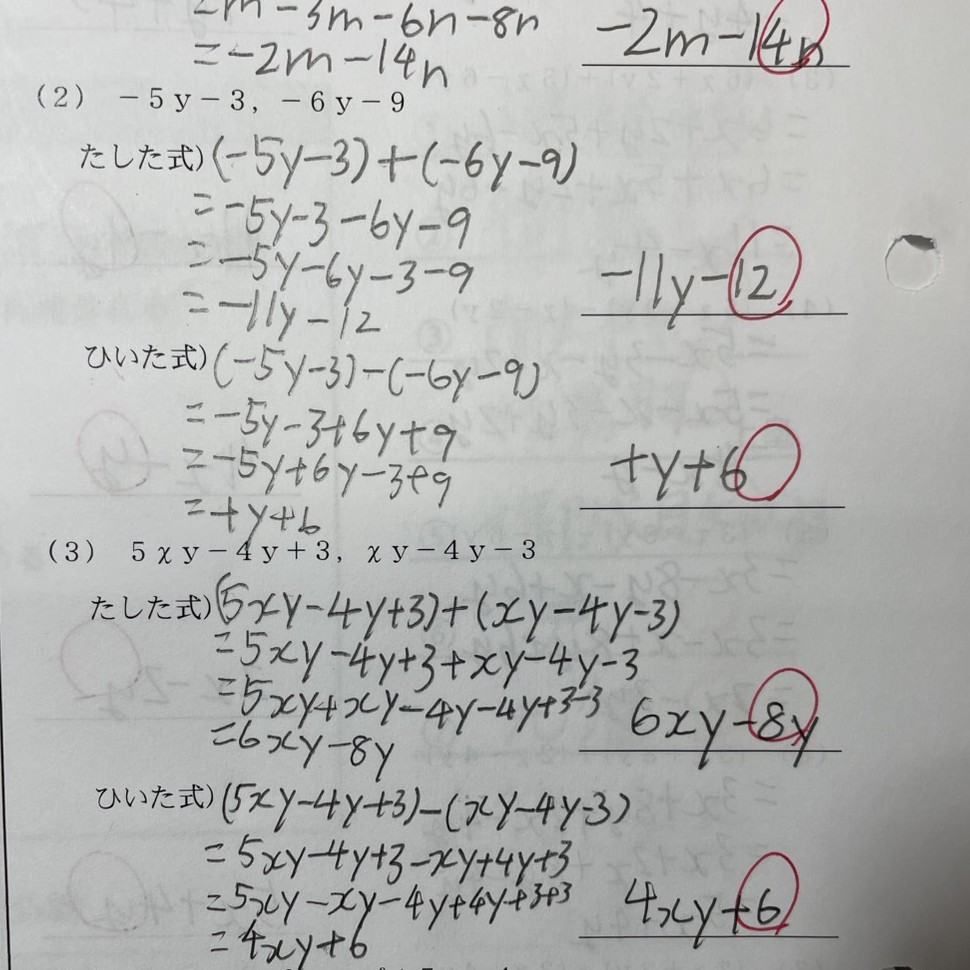 2m-3m-6n-8n
=-2m-14n
-2m-14n
(2) -5y-3, -6y-9
たした式)(-5y-3)+(-6y-9)
=-5y-3-6y-9
=-5y-6y-3-9
=-11y-12
-11y-12
ひいた式)(-5y-3)-(-6y-9)
=-5y-3+6y+9
=-5y+6y-3+9
=+y+6
+y+6
(3) 5xy-4y+3, xy-4y-3
たした式)(5xy-4y+3)+(xy-4y-3)
=5xy-4y+3+xy-4y-3
=5xy+xy-4y-4y+3-3
=6xy-8y
6xy-8y
ひいた式)(5xy-4y+3)-(xy-4y-3)
=5xy-4y+3-xy+4y+3
=5xy-xy-4y+4y+3+3
=4xy+6
4xy+6